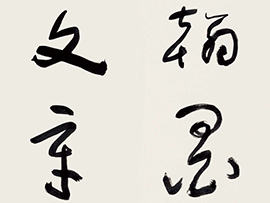 翰墨
文章